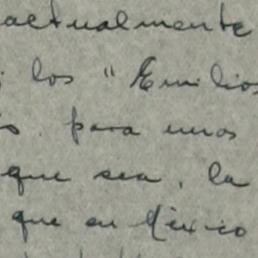 actualmente
los "Emilios
para unos
que sea, la
que en México